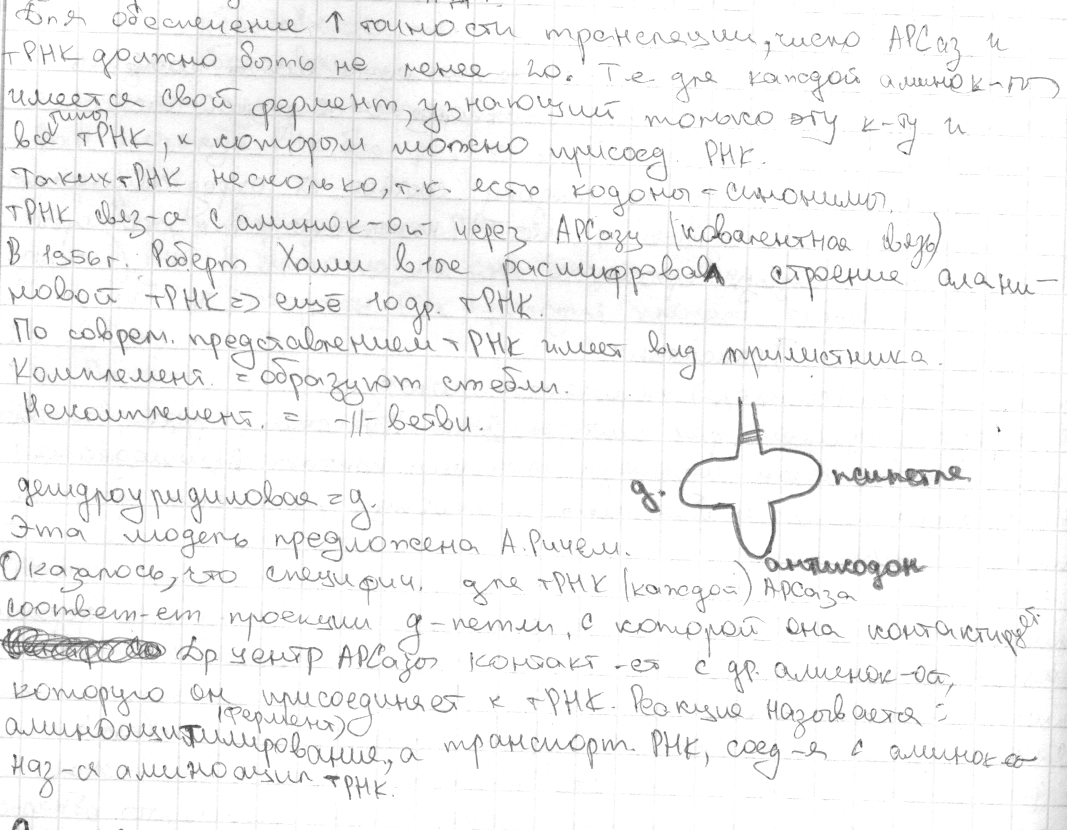 Для обеспечение ↑ точности трансляции, число АРСаз и
тРНК должно быть не менее 20. Те для каждой аминок-ты
имеется свой фермент, узнающий только эту к-ту и
все типы тРНК, к которым можно присоед. РНК.
Таких тРНК несколько, т.к. есть кодоны-синонимы.
тРНК связ-ся с аминок-ой через АРСазу (ковалентная связь)
В 1956г. Роберт Холли впые расшифровал строение алани-
новой тРНК => ещё 10 др. тРНК.
По соврем. представлением тРНК имеет вид трилистника.
Комплемент. = образуют стебли.
Некомплемент. = -||- ветви.
д. псипетля
дегидроуридиловая = д.
Эта модель предложена А. Ричем.
антикодон
Оказалось, что специфич. для тРНК (каждой) АРСаза
соответ-ет проекции д-петли, с которой она контактирует
Др центр АРСазы контакт-ет с др. аминок-ой,
которую он присоединяет к тРНК. Реакция называется =
(фермент)
аминоацитилирование, а транспорт. РНК, соед-я с аминок-ой
наз-ся аминоацил тРНК.